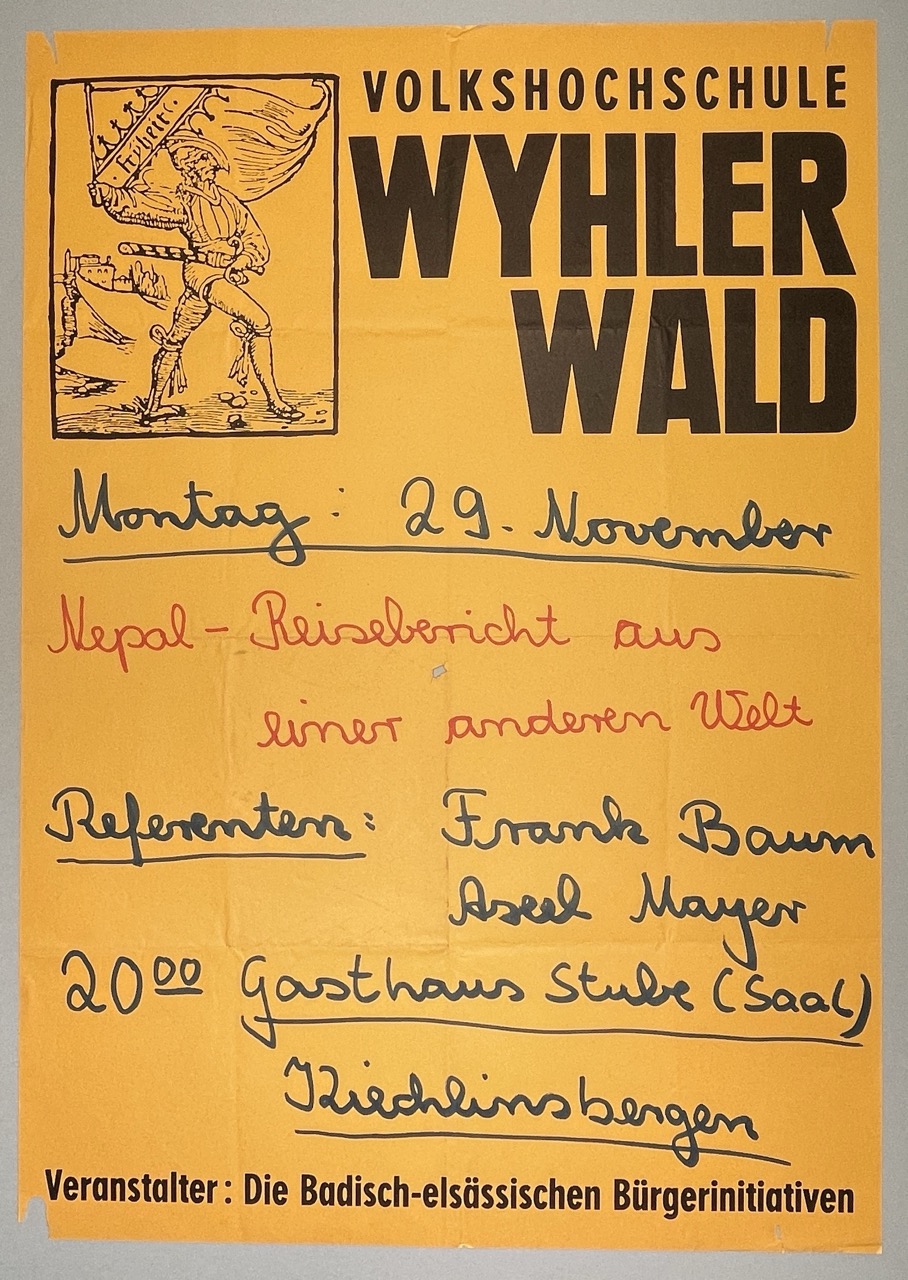 Friheitt.
VOLKSHOCHSCHULE
WYHLER
WALD
Montag: 29. November
Nepal - Reisebericht aus
einer anderen Welt
Referenten: Frank Baum
Axel Mayer
20⁰⁰ Gasthaus Stube (Saal)
Kiechlinsbergen
Veranstalter: Die Badisch-elsässischen Bürgerinitiativen